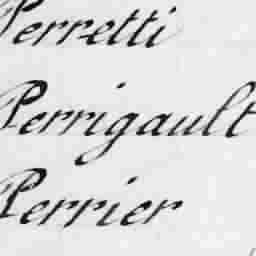 Perretti
Perrigault
Perrier